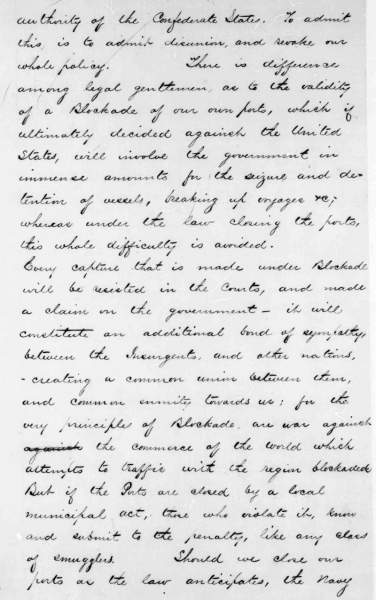 authority of the Confederate States. To admit
this, is to admit disunion, and revoke our
whole policy. There is difference
among legal gentlemen, as to the validity
of a Blockade of our own ports, which if
ultimately decided against the United
States, will involve the government in
immense amounts for the seizure and de-
tention of vessels, breaking up voyages &c;
whereas under the law closing the ports,
this whole difficulty is avoided.
Every capture that is made under Blockade
will be resisted in the Courts, and made
a claim on the government – it will
constitute an additional bond of sympathy,
between the Insurgents, and other nations,
- creating a common union between them,
and common enmity towards us; for the
very principles of Blockade, are war against
against the commerce of the world which
attempts to traffic with the region blockaded
But if the Ports are closed by a local
municipal act, those who violate it, know
and submit to the penalty, like any class
of smugglers. Should we close our
ports as the law anticipates, the Navy